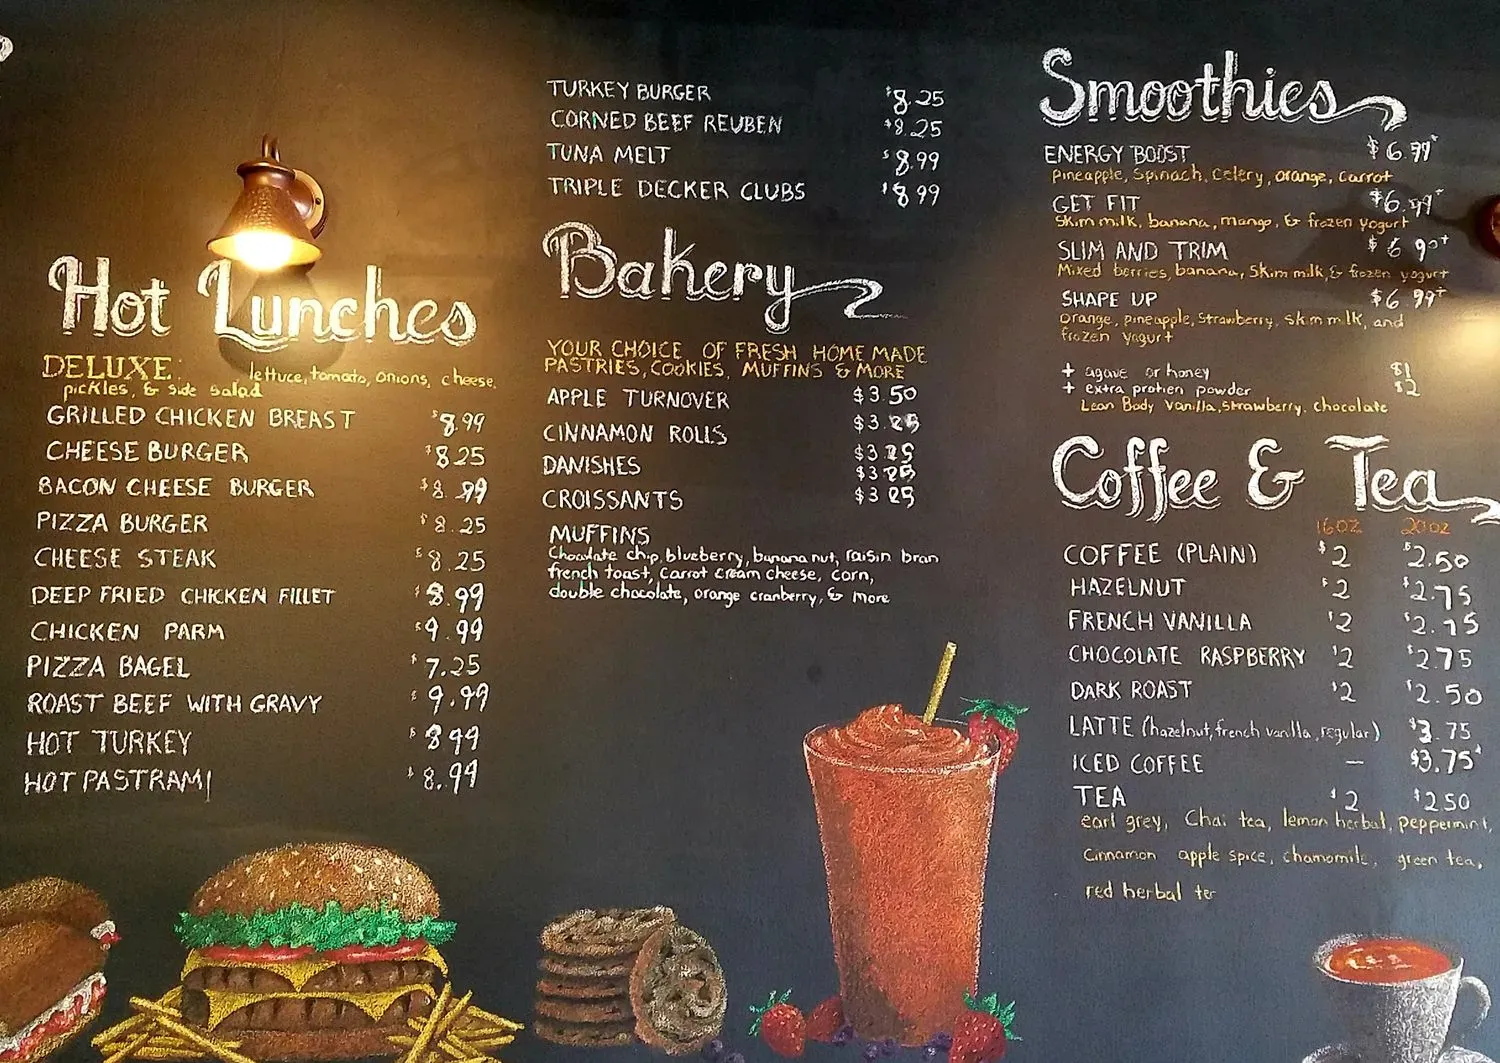 Hot Lunches
DELUXE: lettuce, tomato, onions, cheese,
pickles, & side salad
GRILLED CHICKEN BREAST $8.99
CHEESE BURGER $8.25
BACON CHEESE BURGER $8.99
PIZZA BURGER $8.25
CHEESE STEAK $8.25
DEEP FRIED CHICKEN FILLET $8.99
CHICKEN PARM $9.99
PIZZA BAGEL $7.25
ROAST BEEF WITH GRAVY $9.99
HOT TURKEY $8 99
HOT PASTRAMI $8.99
TURKEY BURGER $8.25
CORNED BEEF REUBEN $8.25
TUNA MELT $8.99
TRIPLE DECKER CLUBS $8 99
Bakery
YOUR CHOICE OF FRESH HOME MADE
PASTRIES, COOKIES, MUFFINS & MORE
APPLE TURNOVER $3.50
CINNAMON ROLLS $3.25
DANISHES $3 25
$3 25
CROISSANTS $3 25
MUFFINS
Chocolate chip, blueberry, banana nut, raisin bran
french toast, Carrot cream cheese, corn,
double chocolate, orange cranberry, & more
Smoothies
ENERGY BOOST $6.99+
pineapple, Spinach, Celery, orange, Carrot
GET FIT $6.99+
Skim milk, banana, mango, & frozen yogurt
SLIM AND TRIM $6 +
Mixed berries, banana, Skim milk, & frozen yogurt
SHAPE UP $6 99+
Orange, pineapple, Strawberry, Skim milk, and
frozen yogurt
+ agave or honey $1
+ extra protien powder $2
Lean Body Vanilla, Strawberry, chocolate
Coffee & Tea
16oz 20oz
COFFEE (PLAIN) $2 $2.50
HAZELNUT $2 $2.75
FRENCH VANILLA $2 $2.75
CHOCOLATE RASPBERRY $2 $2.75
DARK ROAST $2 $2.50
LATTE (hazelnut, french vanilla, regular) $3.75
ICED COFFEE — $3.75+
TEA $2 $2 50
earl grey, Chai tea, lemon herbal, peppermint,
Cinnamon apple spice, chamomile, green tea,
red herbal te